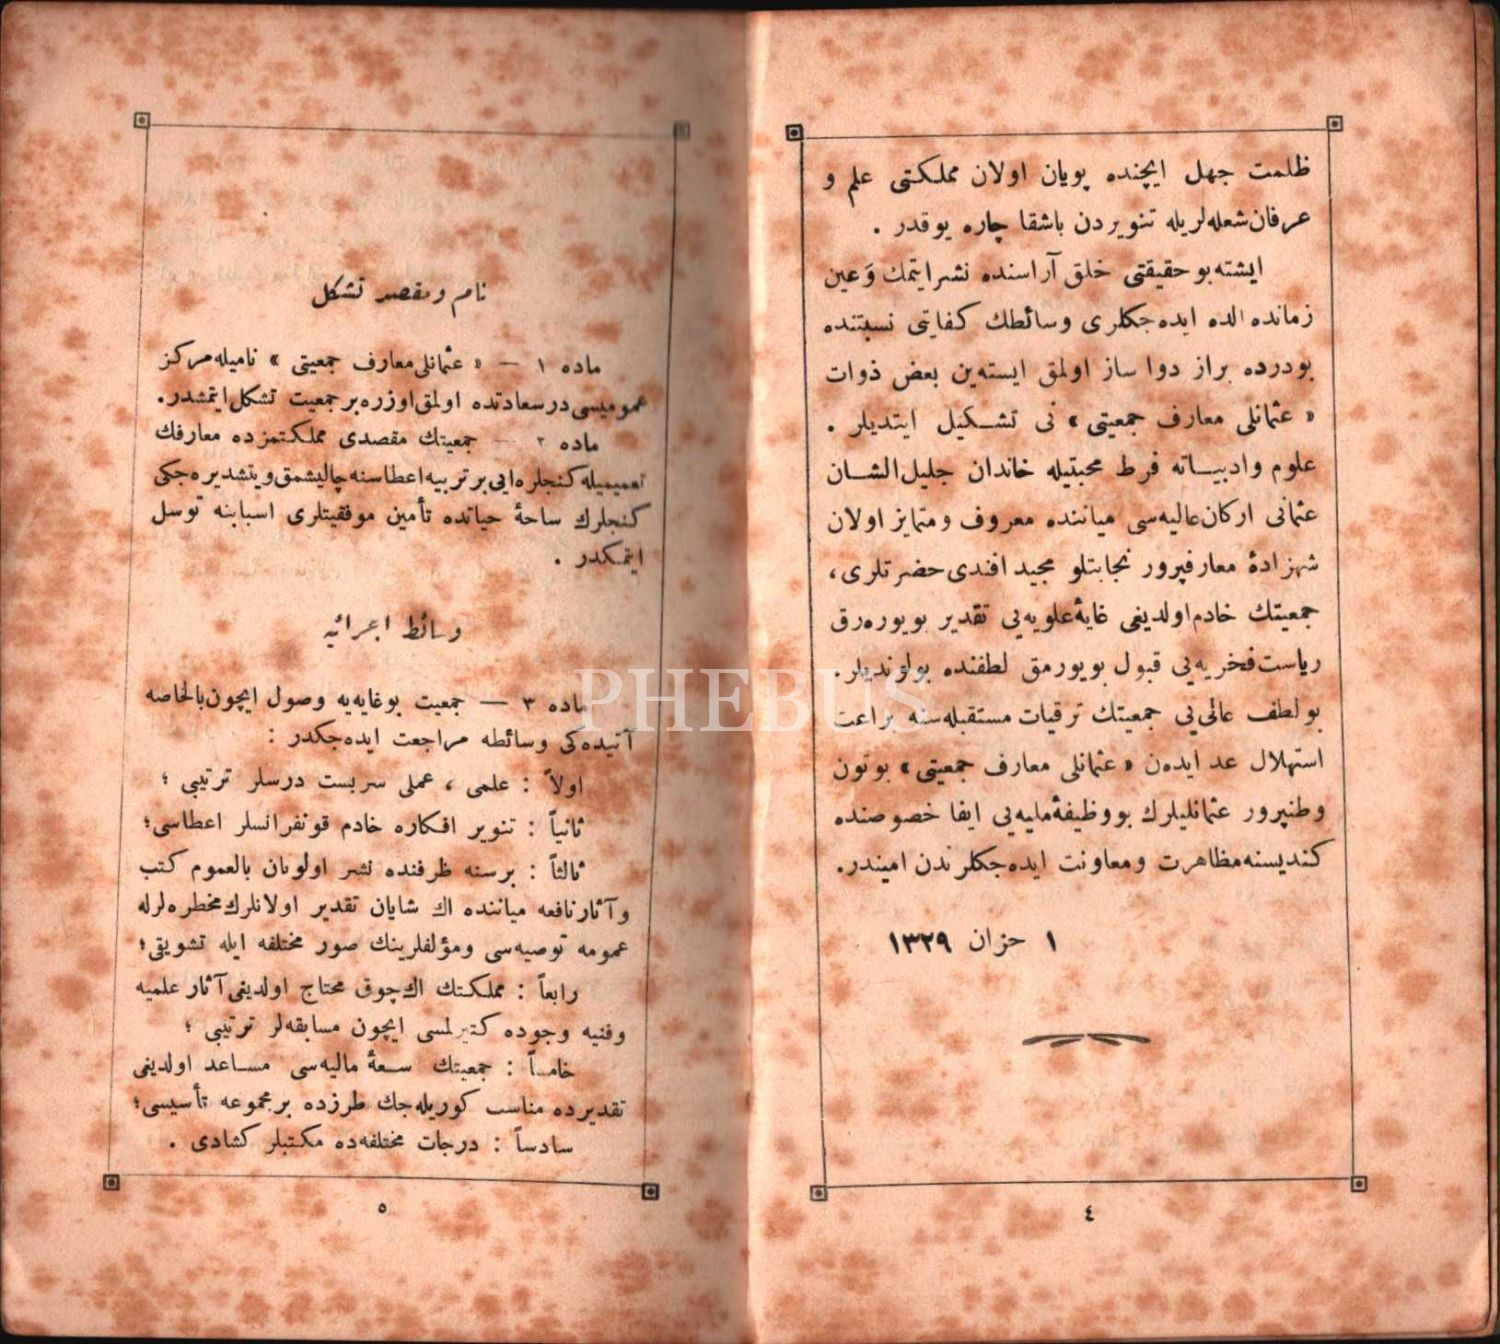 ظلمت جهل ایچنده پویان اولان مملکتی علم و
عرفان شعله‌لریله تنویردن باشقا چاره یوقدر .
ایشته بو حقیقتی خلق آراسنده نشر ایتمك وَ عین
زمانده الده ایده‌جکلری وسائطك کفایتی نسبتنده
بو درده براز دوا ساز اولمق ایسته‌ین بعض ذوات
« عثمانلی معارف جمعیتی » نی تشکیل ایتدیلر .
علوم و ادبیاته فرط محبتیله خاندان جلیل‌الشان
عثمانی ارکان‌عالیه‌سی میاننده معروف و متمایز اولان
شهزادهٔ معارفپرور نجابتلو مجید افندی حضرتلری،
جمعیتك خادم اولدیغی غایهٔ علویه‌یی تقدیر بویوره‌رق
ریاست فخریه‌یی قبول بویورمق لطفنده بولوندیلر.
بو لطف عالی‌یی جمعیتك ترقیات مستقبله‌سنه براعت
استهلال عد ایده‌ن « عثمانلی معارف جمعیتی » بوتون
وطنپرور عثمانلیلرك بو وظیفهٔ ملیه‌یی ایفا خصوصنده
کندیسنه مظاهرت و معاونت ایده‌جکلرندن امیندر.
١ حزان ١٣٢٩
٤
نام و مقصد تشکل
ماده ١ — « عثمانلی معارف جمعیتی » نامیله مرکز
عمومیسی درسعادتده اولمق اوزره بر جمعیت تشکل ایتمشدر.
ماده ٢ — جمعیتك مقصدی مملکتمزده معارفك
تعمیمیله کنجلره ایی بر تربیه اعطاسنه چالیشمق و یتشدیره‌جکی
کنجلرك ساحهٔ حیاتده تأمین موفقیتلری اسبابنه توسل
ایتمکدر .
وسائط اجرائیه
ماده ٣ — جمعیت بو غایه‌یه وصول ایچون بالخاصه
آتیده‌کی وسائطه مراجعت ایده‌جکدر :
اولاً : علمی ، عملی سربست درسلر ترتیبی ؛
ثانیاً : تنویر افکاره خادم قونفرانسلر اعطاسی؛
ثالثاً : بر سنه ظرفنده نشر اولونان بالعموم کتب
و آثار نافعه میاننده اك شایان تقدیر اولانلرك مخطره‌لرله
عمومه توصیه‌سی و مؤلفلرینك صور مختلفه ایله تشویقی؛
رابعاً : مملکتك اك چوق محتاج اولدیغی آثار علمیه
و فنیه وجوده کتیرلمسی ایچون مسابقه‌لر ترتیبی ؛
خامساً : جمعیتك سعهٔ مالیه‌سی مساعد اولدیغی
تقدیرده مناسب کوریله‌جك طرزده بر مجموعه تأسیسی؛
سادساً : درجات مختلفه‌ده مکتبلر کشادی .
٥
PHEBUS